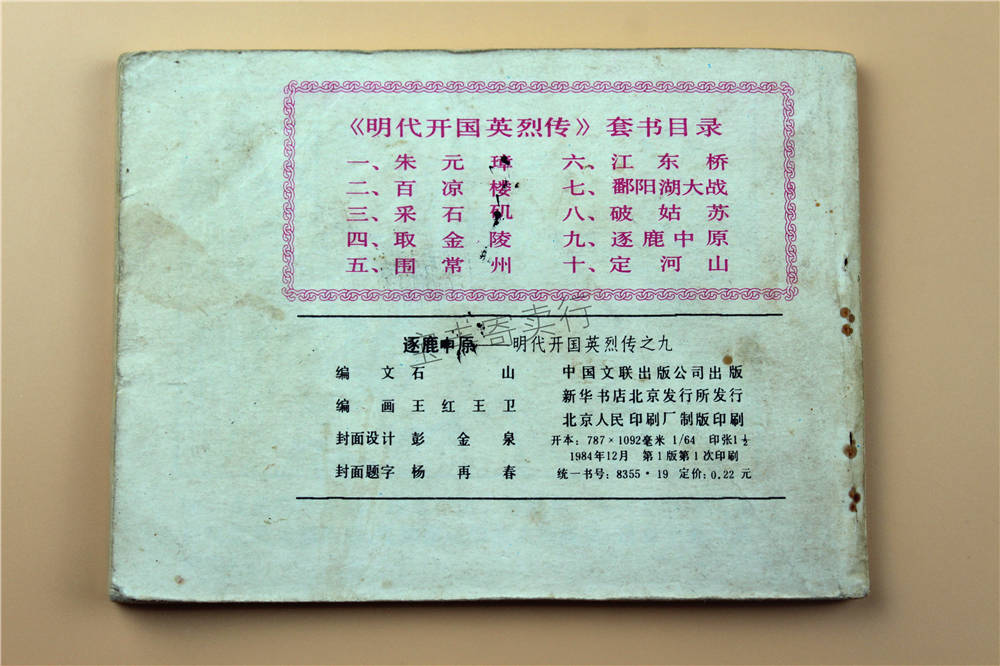 《明代开国英烈传》套书目录
一、朱元璋
二、百凉楼
三、采石矶
四、取金陵
五、围常州
六、江东桥
七、鄱阳湖大战
八、破姑苏
九、逐鹿中原
十、定河山
逐鹿中原——明代开国英烈传之九
编文 石山
编画 王红 王卫
封面设计 彭金泉
封面题字 杨再春
中国文联出版公司出版
新华书店北京发行所发行
北京人民印刷厂制版印刷
开本:787×1092毫米 1/64 印张1½
1984年12月 第1版第1次印刷
统一书号:8355·19 定价:0.22元